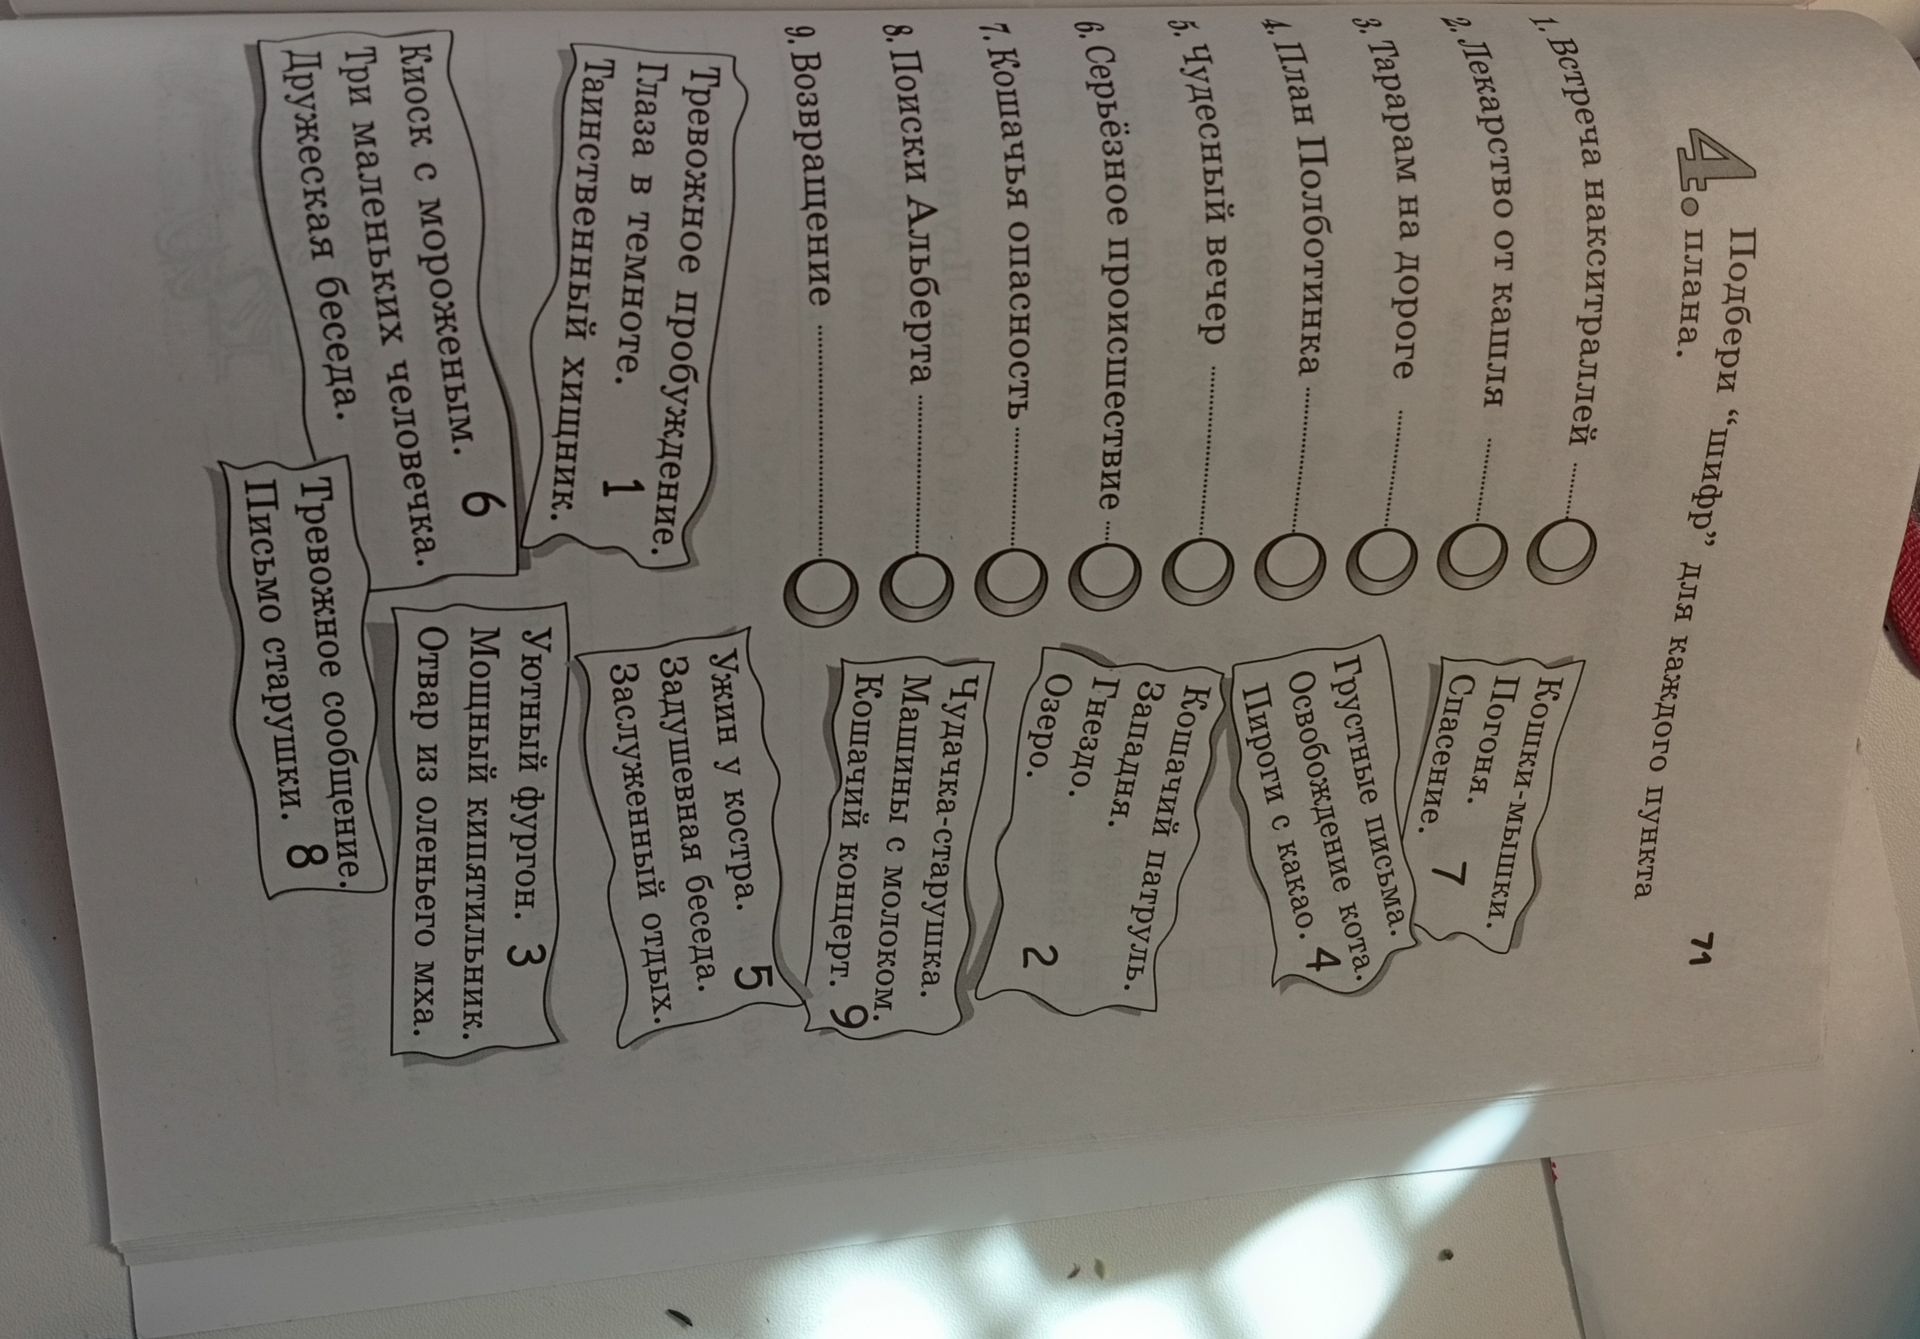 71
4. Подбери “шифр” для каждого пункта
плана.
1. Встреча накситраллей
2. Лекарство от кашля
3. Тарарам на дороге
4. План Полботинка
5. Чудесный вечер
6. Серьёзное происшествие
7. Кошачья опасность
8. Поиски Альберта
9. Возвращение
Кошки-мышки.
Погоня.
Спасение. 7
Грустные письма.
Освобождение кота.
Пироги с какао. 4
Кошачий патруль.
Западня.
Гнездо.
Озеро. 2
Чудачка-старушка.
Машины с молоком.
Кошачий концерт. 9
Тревожное пробуждение.
Глаза в темноте. 1
Таинственный хищник.
Ужин у костра. 5
Задушевная беседа.
Заслуженный отдых.
Киоск с мороженым. 6
Три маленьких человечка.
Дружеская беседа.
Уютный фургон. 3
Мощный кипятильник.
Отвар из оленьего мха.
Тревожное сообщение.
Письмо старушки. 8